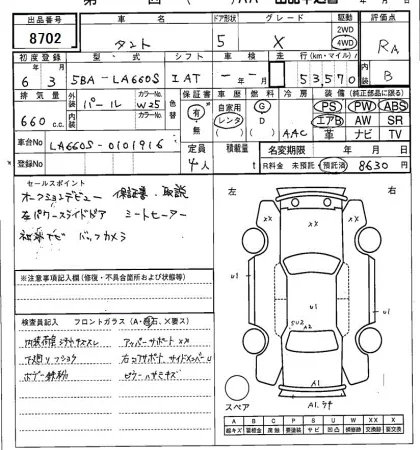 出品番号
8702
車名
タント
ドア形状
5
グレード
X
駆動
2WD
4WD
評価点
RA
B
初度登録
6年 3月
型・式
5BA-LA660S
シフト
IAT
車検
-年-月
走行(km・マイル)
53570
排気量
660 c.c.
外装 パール
カラーNo.
W25
内装
カラーNo.
色替
保証書
有・無
車歴
自家用
レンタ
燃料
G
D
冷房
AAC
装備(純正部品に限る)
PS PW ABS
エアB AW SR
革 ナビ TV
車台No
LA660S-0101916
登録No
定員
4人
積載量
t
名変期限 年 月 日
R料金 未預託 預託済 8630円
セールスポイント
オークションデビュー 保証書 取説
左パワースライドドア シートヒーター
社外ナビ バックカメラ
※注意事項記入欄(修復・不具合箇所および状態等)
検査員記入 フロントガラス(A・飛石、X要ス)
内装荷室シタキズスレ
下廻り、フショク
アッパーサポートXX
右コアサポート、サイドメンバーU
左 右
XX
XX
U1
U1
U1
SU2
A2
A1
A1. ラチ
スペア
A B C P S U W X XX
線キズ 要板金 腐触 要塗装 サビ 凹凸 補修跡 要交換 交換済